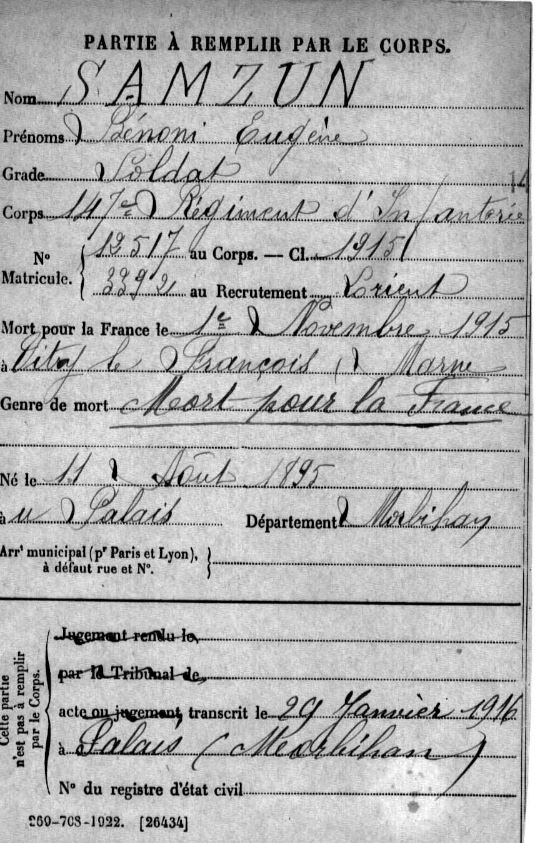 PARTIE À REMPLIR PAR LE CORPS.
Nom SAMZUN
Prénoms Bénoni Eugène
Grade Soldat
Corps 147e Régiment d'Infanterie
N° Matricule. 12517 au Corps. — Cl. 1915
3392 au Recrutement Lorient
Mort pour la France le 1er Novembre 1915
à Vitry le François, Marne
Genre de mort Mort pour la France
Né le 11 Août 1895
à u Palais Département Morbihan
Arrt municipal (pr Paris et Lyon),
à défaut rue et N°.
Cette partie n'est pas à remplir par le Corps.
Jugement rendu le,
par le Tribunal de,
acte ou jugement transcrit le 29 Janvier 1916
à Palais (Morbihan)
N° du registre d'état civil
269-708-1922. [26434]